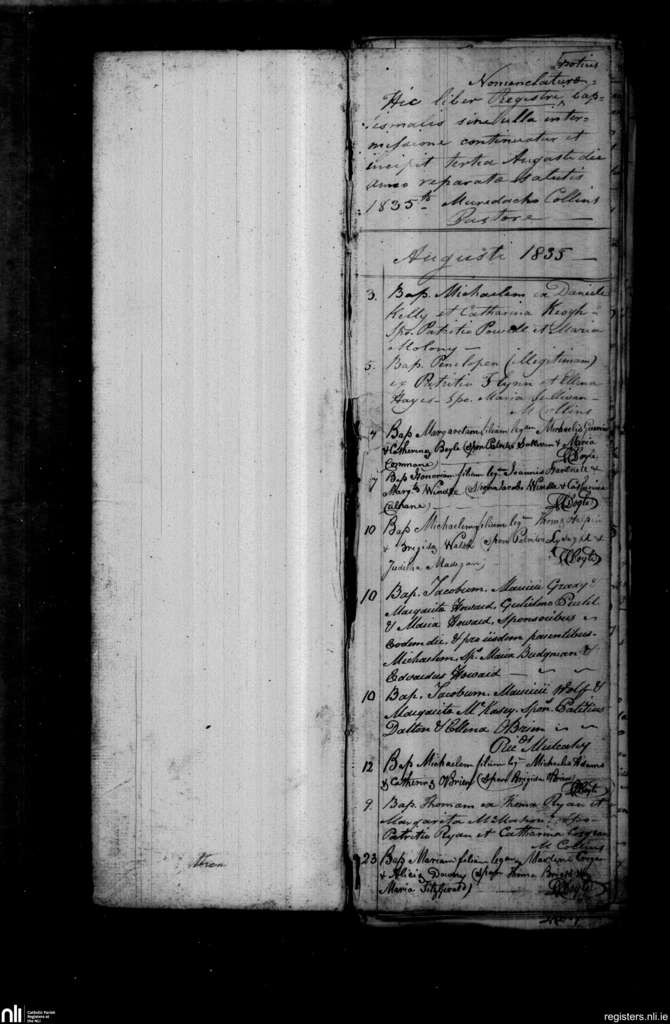 potius
Nomenclaturæ
Hic liber Registri, bap-
tismalis sine ulla inter-
missione continuatur et
incipit tertia Augusti die
anno reparatæ salutis
1835to Muredacho Collins
Pastore
Augusti 1835
3. Bap. Michaelem ex Daniele
Kelly et Catharina Keogh
Sps. Patritio Powell et Maria
Molony
5. Bap. Penelopen (illegitimam)
ex Patritio Flynn et Ellena
Hayes - Spe. Maria Sullivan
M Collins
4 Bap Margaretam filiam legm Michaelis
& Catherinæ Boyle (Spon Sullivan & Maria
Commane) Boyle
7 Bap Honoriam filiam legm Joannis Hartnett &
Margta Windle (Spon Jacobo Windle & Catherina
Culhane) Boyle
10 Bap Michaelem filium legm Thomæ
& Brigidæ Walsh (Spon Patricio Lysaght &
Juditha Madigan) Boyle
10 Bap. Jacobum. Mauricii Grady
Margarita Howard, Gulielmo
& Maria Howard, Sponsoribus
Eodem die, & pro iisdem parentibus
Michaelem. Sps Maria &
Edvardus Howard
10 Bap. Jacobum. Mauricii Wolfe &
Margarita McKasey. Spon. Patritius
Dalton & Ellena OBrien
Ricd Mulcahy
12 Bap Michaelem filium legm Michaelis Adams
& Catherinæ OBrien (Spon Brigida
Boyle
9. Bap. Thomam ex Thoma Ryan et
Margareta McMahon. Spo-
Patritio Ryan et Catharina
M Collins
23 Bap Mariam filiam legm
& Aliciæ Downey (Spon Thoma
Maria Fitzgerald) Boyle
nli
Catholic Parish
Registers at
the NLI
registers.nli.ie